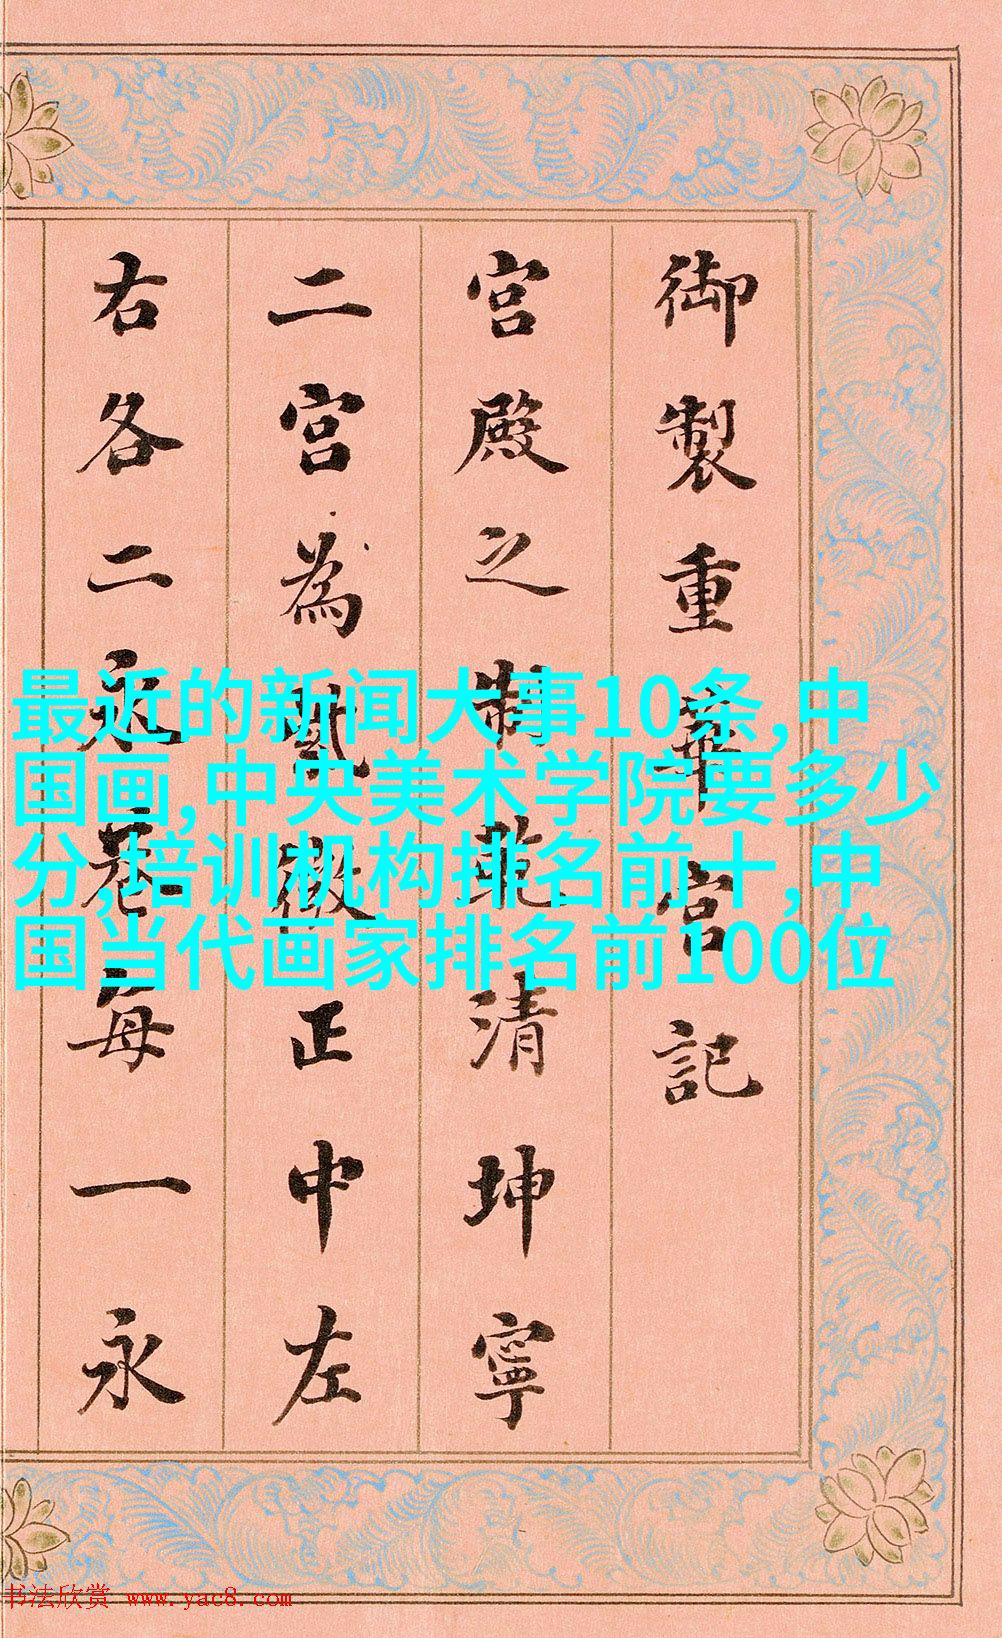 御製重華宮記
宮殿之制乾清坤寧
二宮為紫微正中左
右各二永巷每一永
最近的新闻大事10条,中
国画,中央美术学院要多少
分,培训机构排名前十,中
国当代画家排名前100位
书法欣赏 www.yac8.com